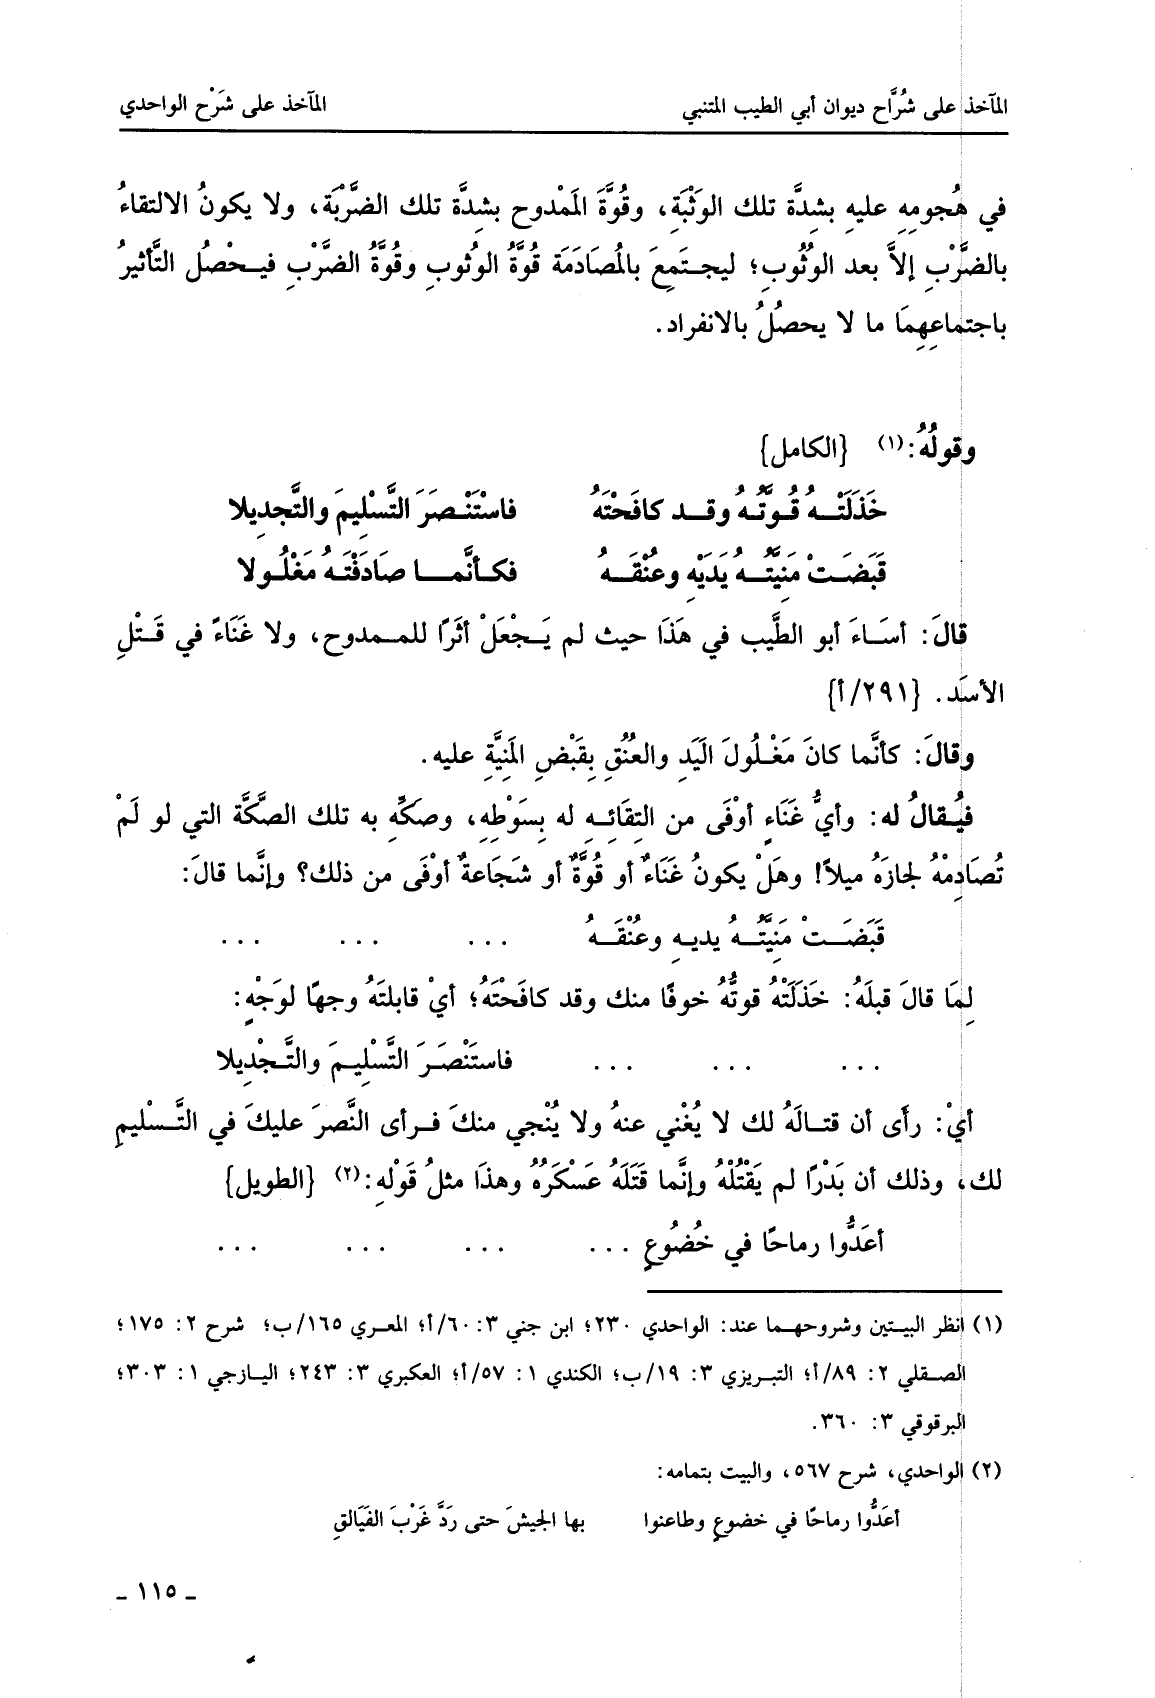 المآخذ على شُرَّاح ديوان أبي الطيب المتنبي المآخذ على شَرْح الواحدي
في هُجومِهِ عليهِ بشِدَّة تلك الوَثْبَةِ، وقُوَّةَ المَمْدوحِ بشِدَّةِ تلك الضَّرْبَة، ولا يكونُ الالتقاءُ
بالضَّرْبِ إلاَّ بعد الوثُوبِ؛ ليجتَمِعَ بالمُصَادَمَة قُوَّةُ الوثُوبِ وقوَّةُ الضَّرْبِ فيحْصُل التَّأثيرُ
باجتماعِهِمَا ما لا يحصُلُ بالانفراد.
وقولُهُ:(١) {الكامل}
خَذَلَتْهُ قُوَّتُهُ وقد كافَحْتَهُ فاسْتَنْصَرَ التَّسْلِيمَ والتَّجدِيلا
قَبَضَتْ مَنِيَّتُهُ يَدَيْهِ وعُنْقَهُ فكأنَّما صادَفْتَهُ مَغْلُولا
قالَ: أسَاءَ أبو الطَّيب في هَذَا حيث لم يَجْعَلْ أثَرًا للممدوح، ولا غَنَاءً في قَتْلِ
الأسَد. {٢٩١/أ}
وقالَ: كأنَّما كانَ مَغْلُولَ اليَدِ والعُنُقِ بِقَبْضِ المَنِيَّةِ عليه.
فيُقالُ له: وأيُّ غَنَاءٍ أوْفَى من التِقَائِهِ له بِسَوْطِهِ، وصكِّهِ به تلك الصَّكَّة التي لو لَمْ
تُصَادِمْهُ لجازَهُ ميلاً! وهَلْ يكونُ غَنَاءٌ أو قُوَّةٌ أو شَجَاعةٌ أوْفَى من ذلك؟ وإنَّما قالَ:
قَبَضَتْ مَنِيَّتُهُ يديهِ وعُنْقَهُ ... ... ...
لِمَا قالَ قبلَهُ: خَذَلَتْهُ قوتُّهُ خوفًا منك وقد كافَحْتَهُ؛ أيْ قابلتَهُ وجهًا لوَجْهٍ:
... ... ... فاستَنْصَرَ التَّسْلِيمَ والتَّجْدِيلا
أيْ: رأَى أن قتالَهُ لك لا يُغْني عنهُ ولا يُنْجي منكَ فرأى النَّصرَ عليكَ في التَّسْليمِ
لك، وذلك أن بَدْرًا لم يَقْتُلْهُ وإنَّما قَتَلَهُ عَسْكَرُهُ وهذَا مثلُ قَوْلهِ:(٢) {الطويل}
أعَدُّوا رماحًا في خُضُوعٍ ... ... ... ...
(١) انظر البيتين وشروحهما عند: الواحدي ٢٣٠؛ ابن جني ٣: ٦٠/أ؛ المعري ١٦٥/ب؛ شرح ٢: ١٧٥؛
الصقلي ٢: ٨٩/أ؛ التبريزي ٣: ١٩/ب؛ الكندي ١: ٥٧/أ؛ العكبري ٣: ٢٤٣؛ اليازجي ١: ٣٠٣؛
البرقوقي ٣: ٣٦٠.
(٢) الواحدي، شرح ٥٦٧، والبيت بتمامه:
أعَدُّوا رماحًا في خضوعٍ وطاعنوا بها الجيشَ حتى رَدَّ غَرْبَ الفَيَالقِ
ـ ١١٥ ـ